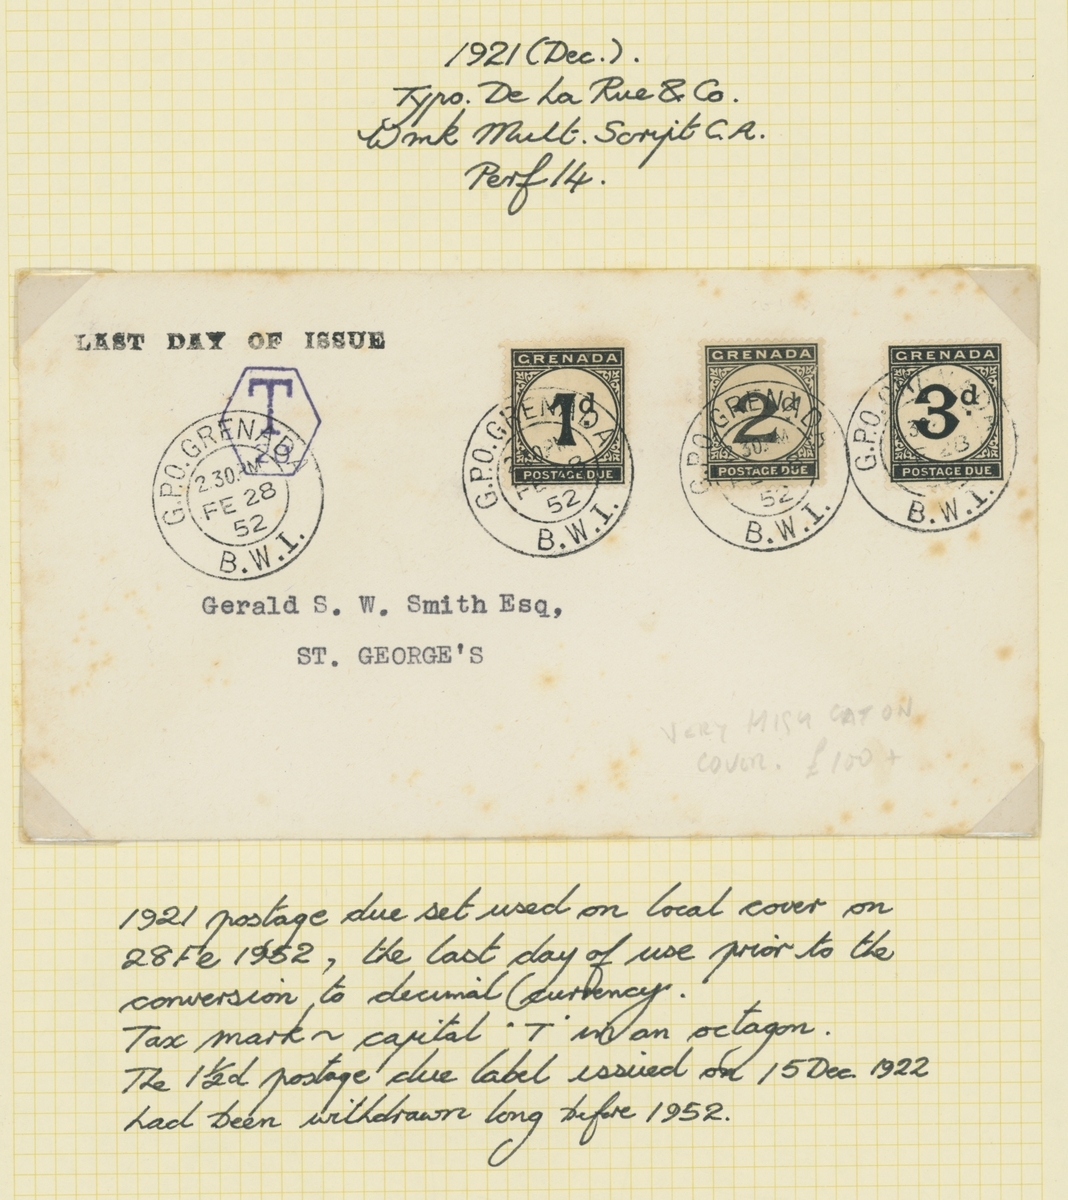 1921 (Dec.).
Typo. De La Rue & Co.
Wmk Mult. Script C.A.
Perf 14.
LAST DAY OF ISSUE
T
G.P.O. GRENADA
2.30.PM
FE 28
52
B.W.I.
GRENADA
1d.
POSTAGE DUE
G.P.O. GRENADA
FE 28
52
B.W.I.
GRENADA
2d
POSTAGE DUE
G.P.O. GRENADA
52
B.W.I.
GRENADA
3d
POSTAGE DUE
G.P.O.
28
B.W.I.
Gerald S. W. Smith Esq,
ST. GEORGE'S
VERY HIGH CAT ON
COVER. £100 +
1921 postage due set used on local cover on
28 Fe 1952, the last day of use prior to the
conversion to decimal currency.
Tax mark ~ capital 'T' in an octagon.
The 1½d postage due label issued on 15 Dec. 1922
had been withdrawn long before 1952.